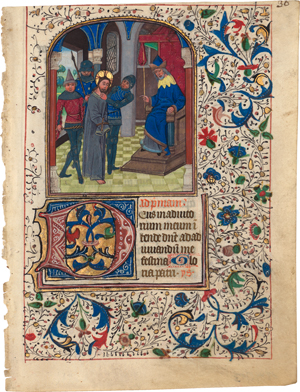 36
Ad primam
Deus in adiuto
rium meum i
tende dne ad ad
iuuandum me
festina Glo
ria patri